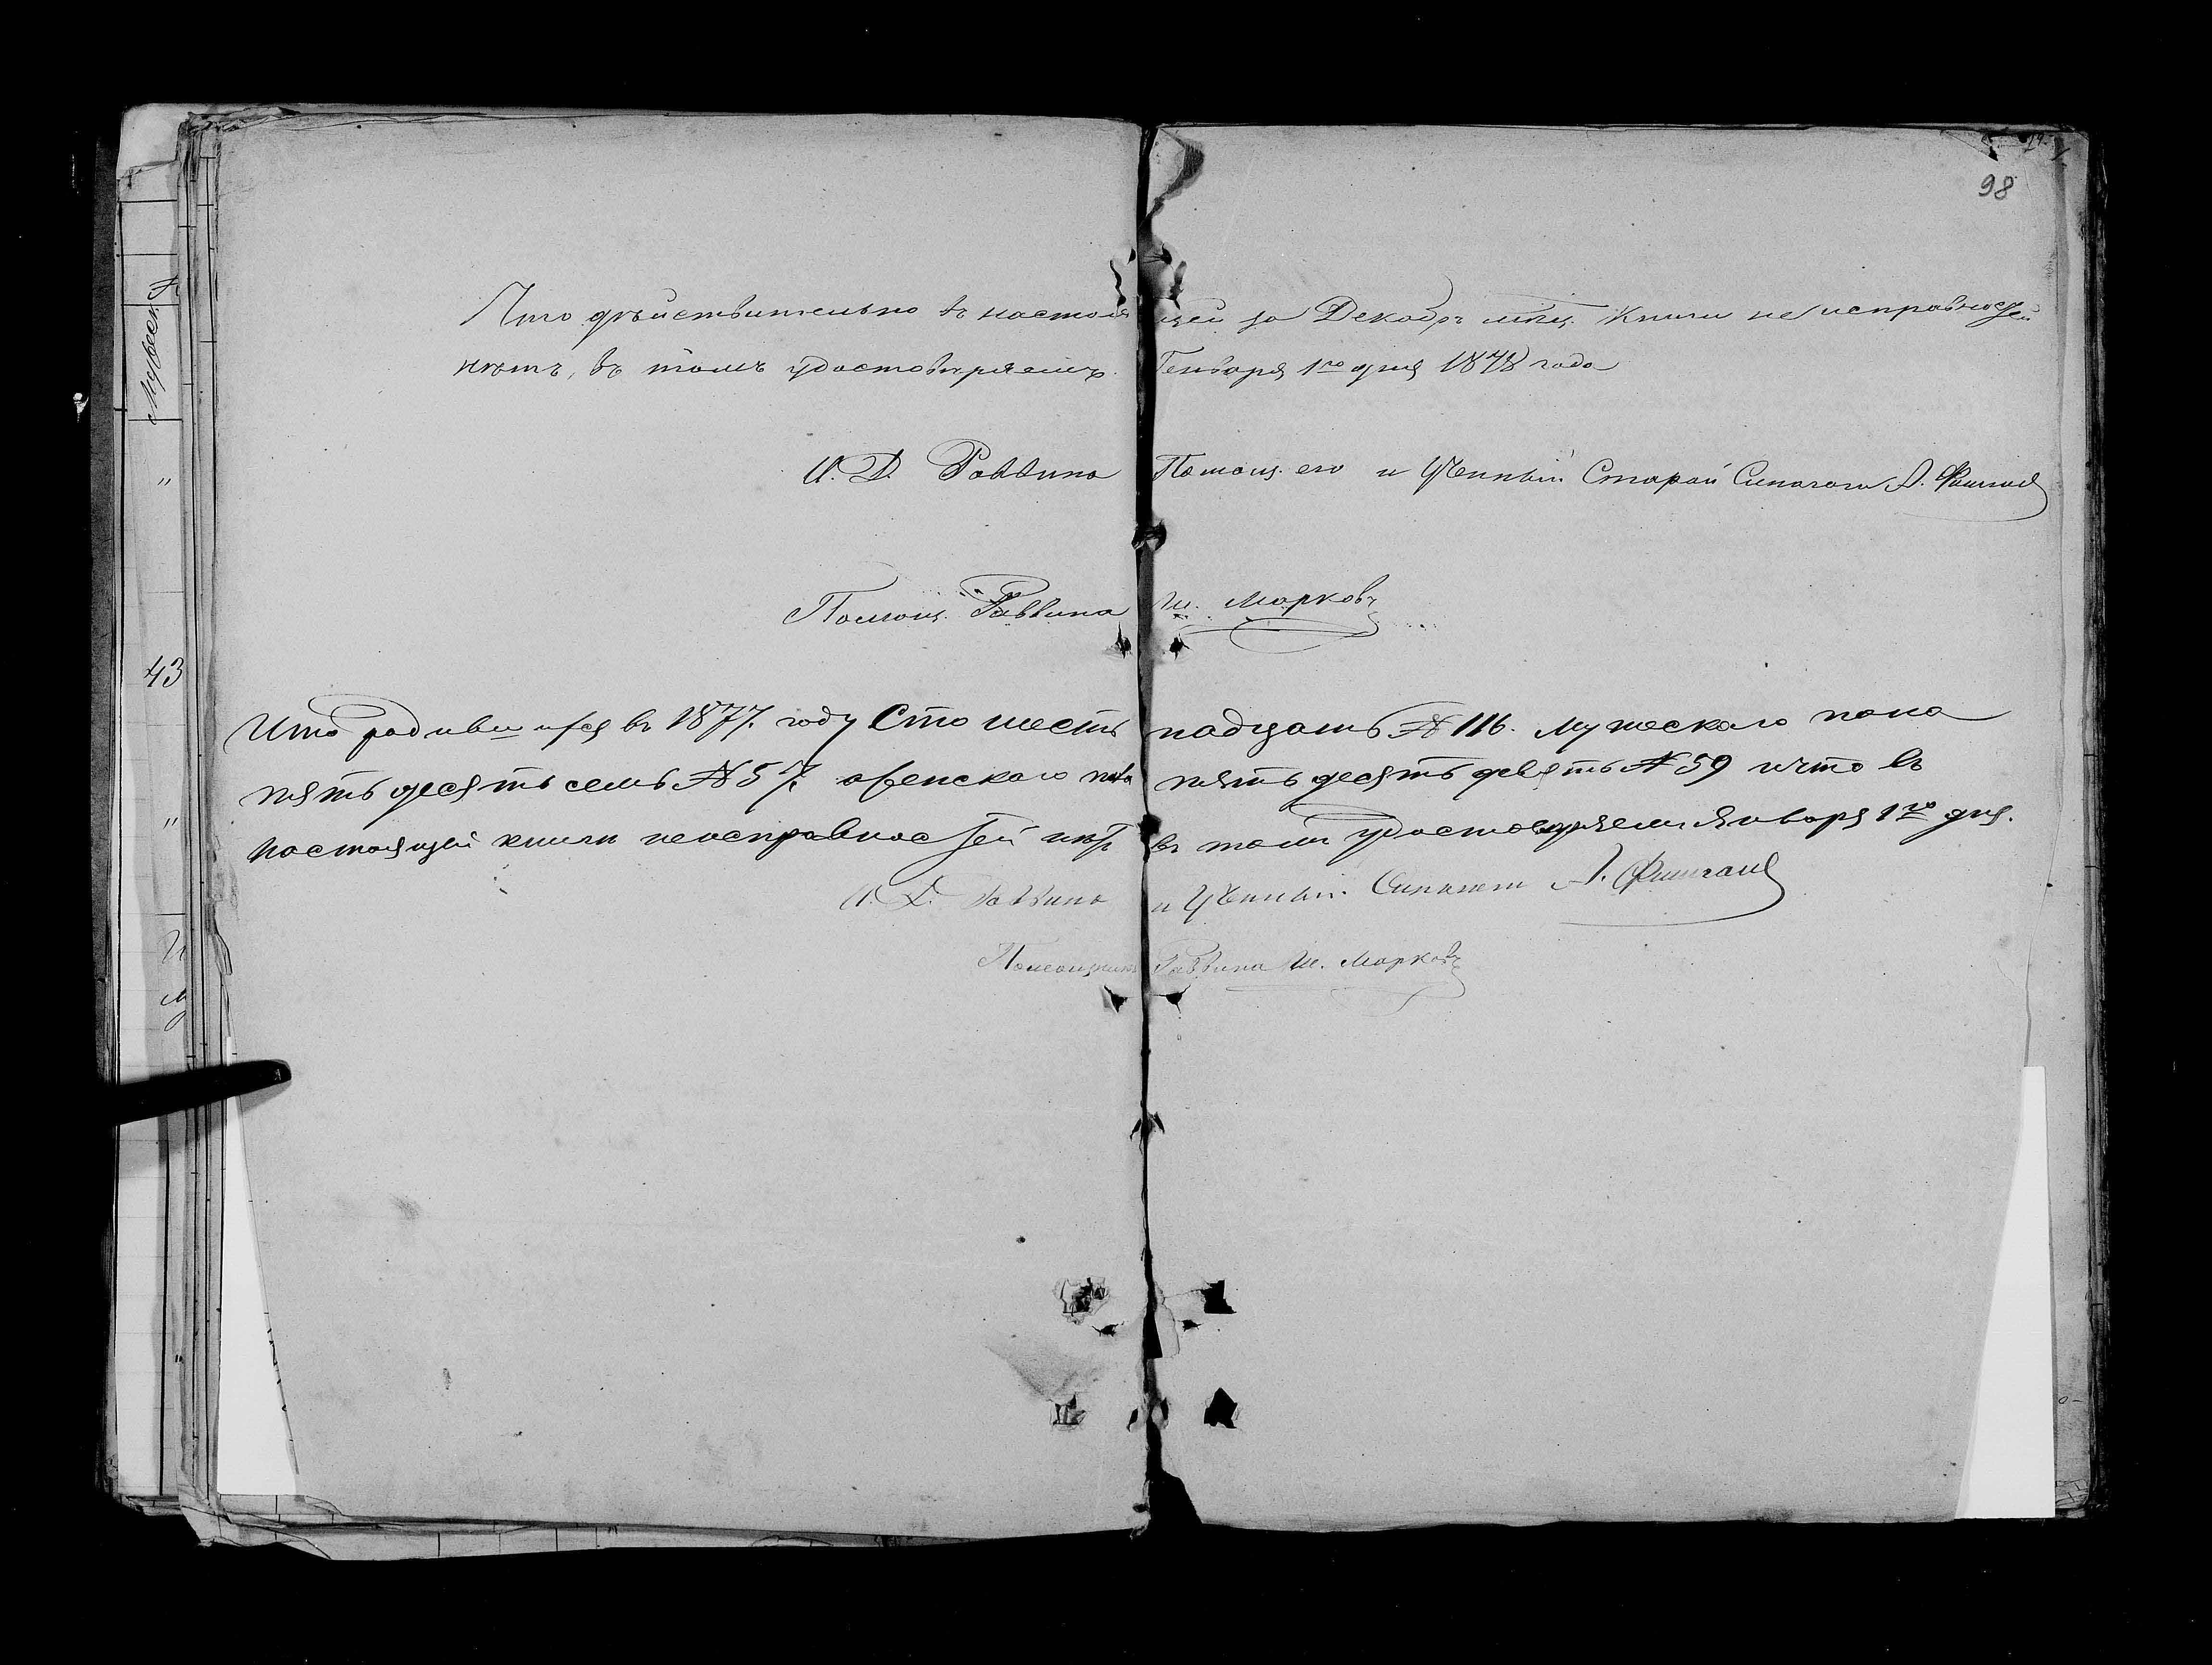 98
Что дѣйствительно въ настоящей за Декабрь мѣц. книги неисправностей
нѣтъ, въ томъ удостовѣряемъ. Генваря 1го дня 1878 года
И. Д. Раввина Помощ. его и Ученый Старой Синагоги А.
Помощ. Раввина Ш. Марковъ
43
Что родившихся въ 1877. году Сто шестьнадцать № 116. мужескаго пола
пятьдесятъ семь № 57. женскаго пола пятьдесятъ девять № 59 и что въ
настоящей книги неисправностей нѣтъ въ томъ удостоверяемъ Января 1го дня.
И. Д. Раввина и Ученый Синагоги А.
Помощникъ Раввина Ш. Марковъ